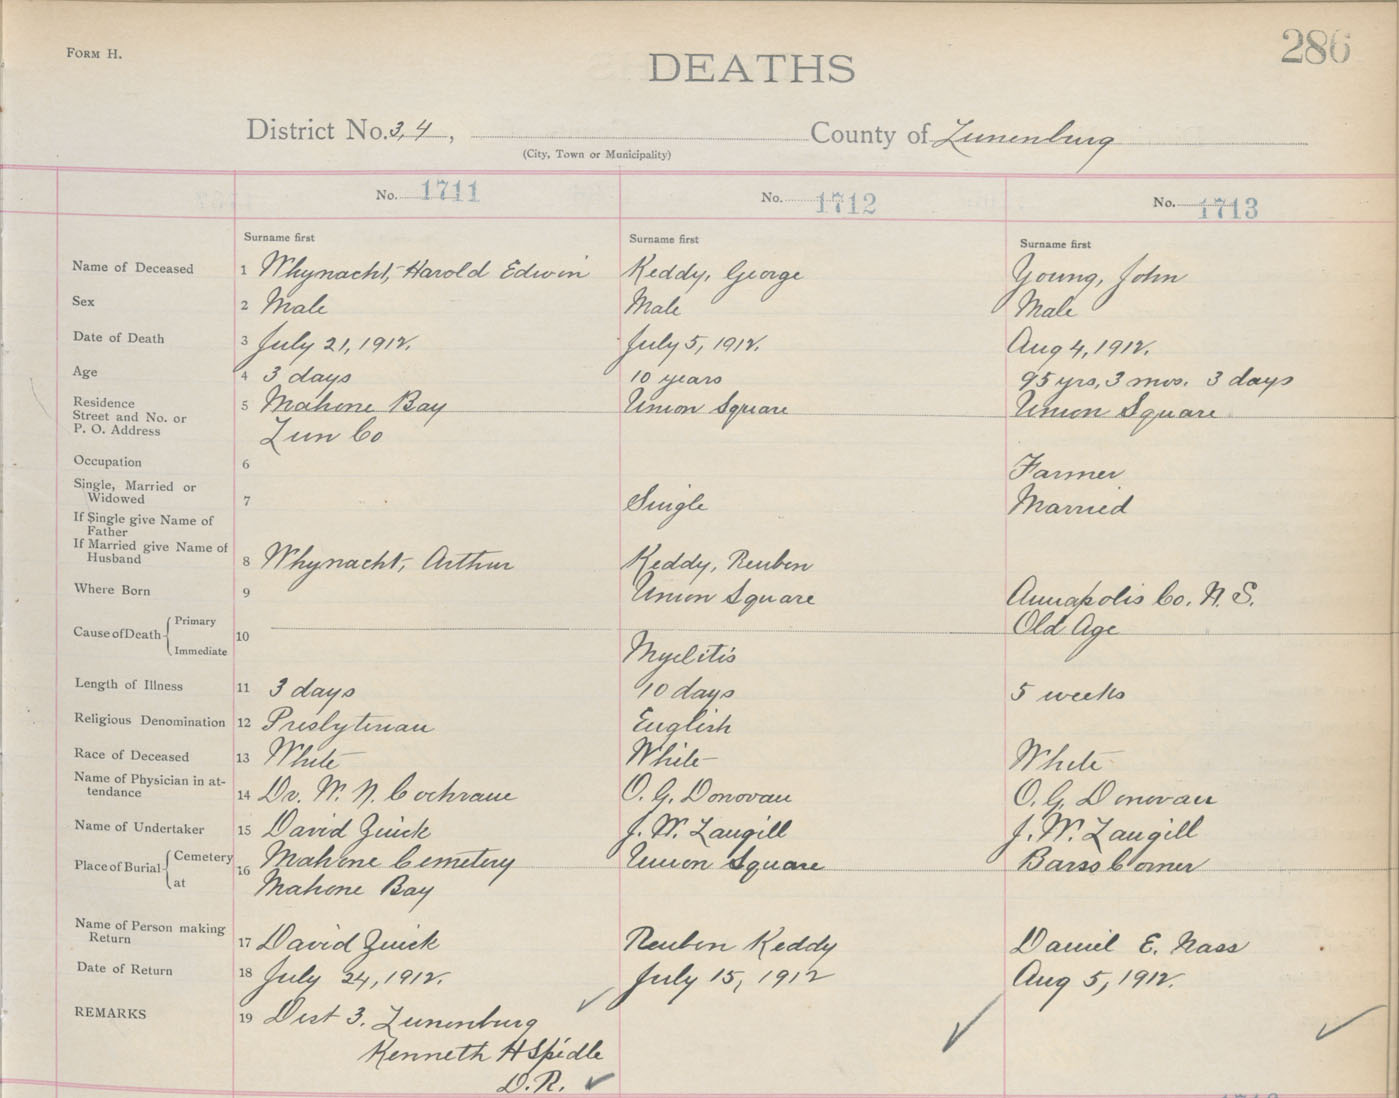 FORM H.
286
DEATHS
District No. 3, 4, County of Lunenburg
(City, Town or Municipality)
No. 1711 No. 1712 No. 1713
Surname first Surname first Surname first
Name of Deceased 1 Whynacht, Harold Edwin Keddy, George Young, John
Sex 2 Male Male Male
Date of Death 3 July 21, 1912. July 5, 1912. Aug 4, 1912.
Age 4 3 days 10 years 95 yrs, 3 mos. 3 days
Residence 5 Mahone Bay Union Square Union Square
Street and No. or
P. O. Address Lun Co
Occupation 6 Farmer
Single, Married or
Widowed 7 Single Married
If Single give Name of
Father
If Married give Name of
Husband 8 Whynacht, Arthur Keddy, Reuben
Where Born 9 Union Square Annapolis Co. N. S.
Cause of Death Primary 10 Old Age
Immediate Myelitis
Length of Illness 11 3 days 10 days 5 weeks
Religious Denomination 12 Presbyterian English
Race of Deceased 13 White White White
Name of Physician in at-
tendance 14 Dr. W. N. Cochrane O. G. Donovan O. G. Donovan
Name of Undertaker 15 David Zwick J. W. Langill J. W. Langill
Place of Burial Cemetery 16 Mahone Cemetery Union Square Barss Corner
at Mahone Bay
Name of Person making
Return 17 David Zwick Reuben Keddy Daniel E. Nass
Date of Return 18 July 24, 1912. July 15, 1912 Aug 5, 1912.
REMARKS 19 Dist 3. Lunenburg
Kenneth H Spidle
D. R.